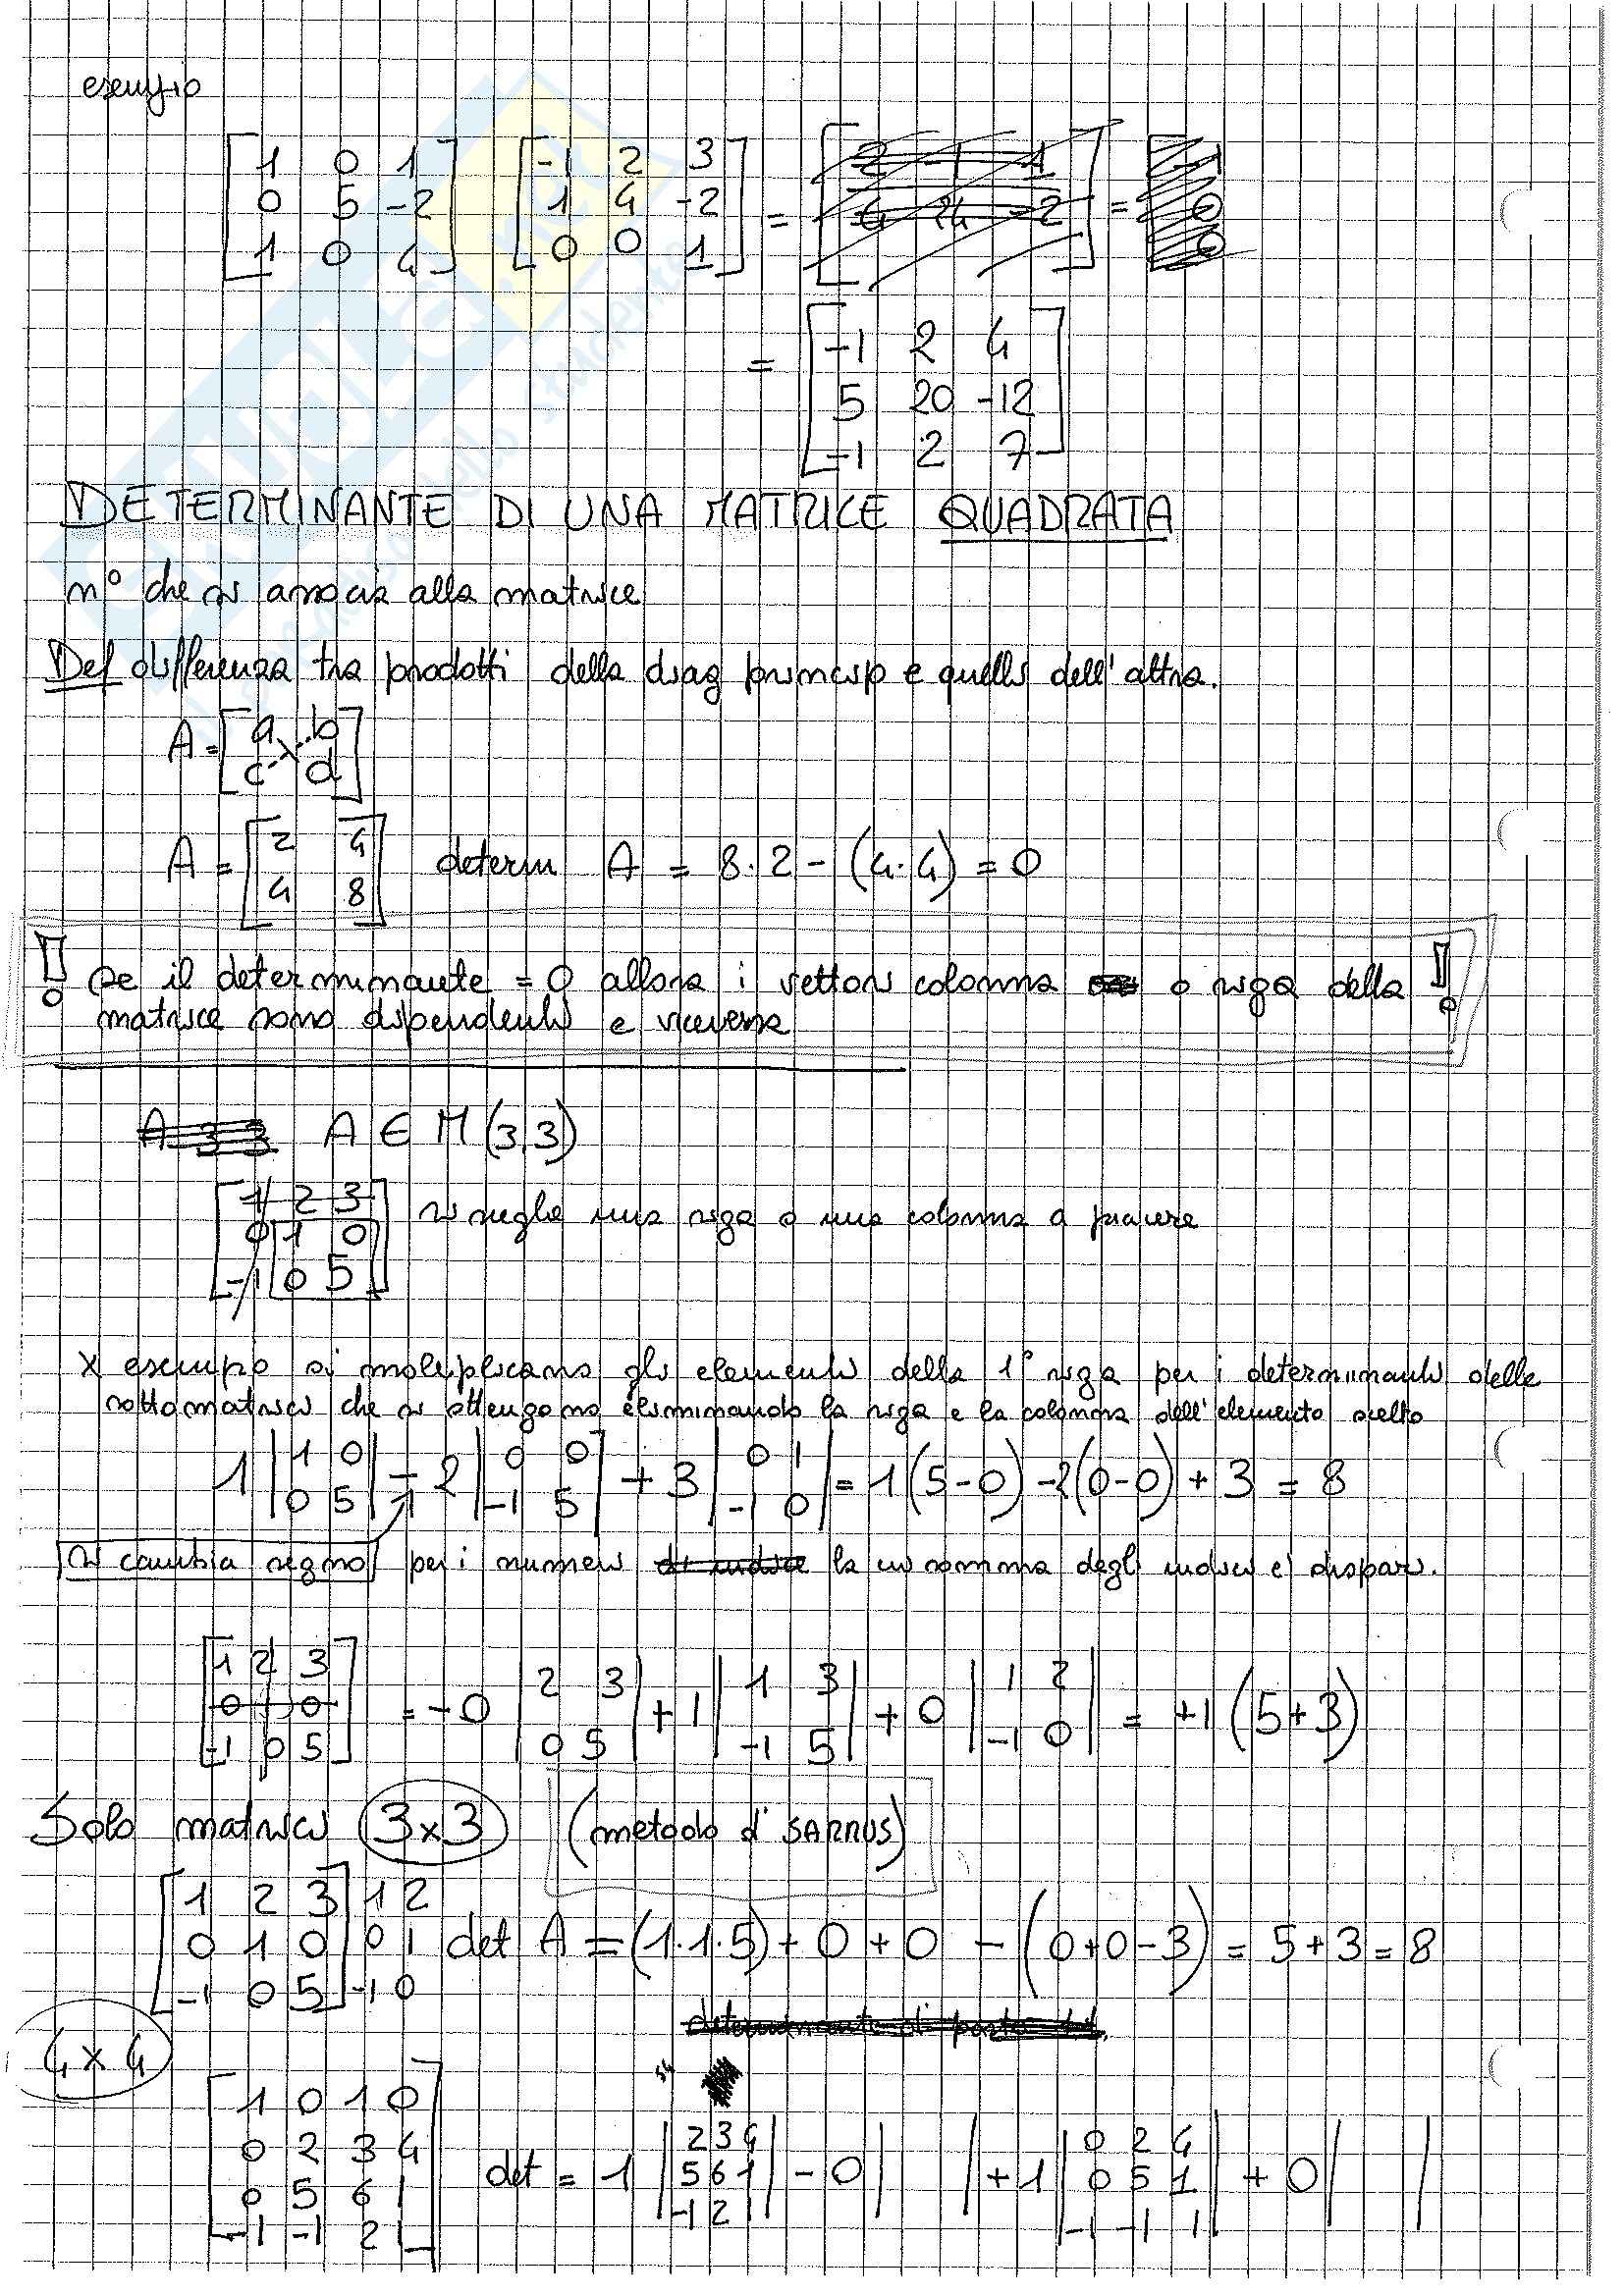 esempio
[1 0 1] [-1 2 3]
[0 5 -2] [1 4 -2] = =
[1 0 4] [0 0 1]
= [-1 2 4]
[5 20 -12]
[-1 2 7]
DETERMINANTE DI UNA MATRICE QUADRATA
n° che si associa alla matrice
Def differenza tra prodotti della diag princip e quelli dell'altra.
A = [a b]
[c d]
A = [2 4] determ A = 8·2 - (4·4) = 0
[4 8]
! se il determinante = 0 allora i vettori colonna o riga della !
matrice sono dipendenti e viceversa
A ∈ M(3,3)
[1 2 3] si sceglie una riga o una colonna a piacere
[0 1 0]
[-1 0 5]
x esempio si moltiplicano gli elementi della 1° riga per i determinanti delle
sottomatrici che si ottengono eliminando la riga e la colonna dell'elemento scelto
1 |1 0| - 2 |0 0| + 3 |0 1| = 1(5-0) -2(0-0) + 3 = 8
|0 5| |-1 5| |-1 0|
si cambia segno per i numeri la cui somma degli indici è dispari.
[1 2 3]
[0 1 0] = -0 |2 3| + 1 |1 3| + 0 |1 2| = +1 (5+3)
[-1 0 5] |0 5| |-1 5| |-1 0|
Solo matrici 3x3 (metodo di SARRUS)
[1 2 3] 1 2
[0 1 0] 0 1 det A = (1·1·5) + 0 + 0 - (0+0-3) = 5+3 = 8
[-1 0 5] -1 0
4x4
[1 0 1 0]
[0 2 3 4] |2 3 4| |0 2 4|
[0 5 6 1] det = 1 |5 6 1| - 0 | | + 1 |0 5 1| + 0 | |
[-1 -1 2 1] |-1 2 1| |-1 -1 1|